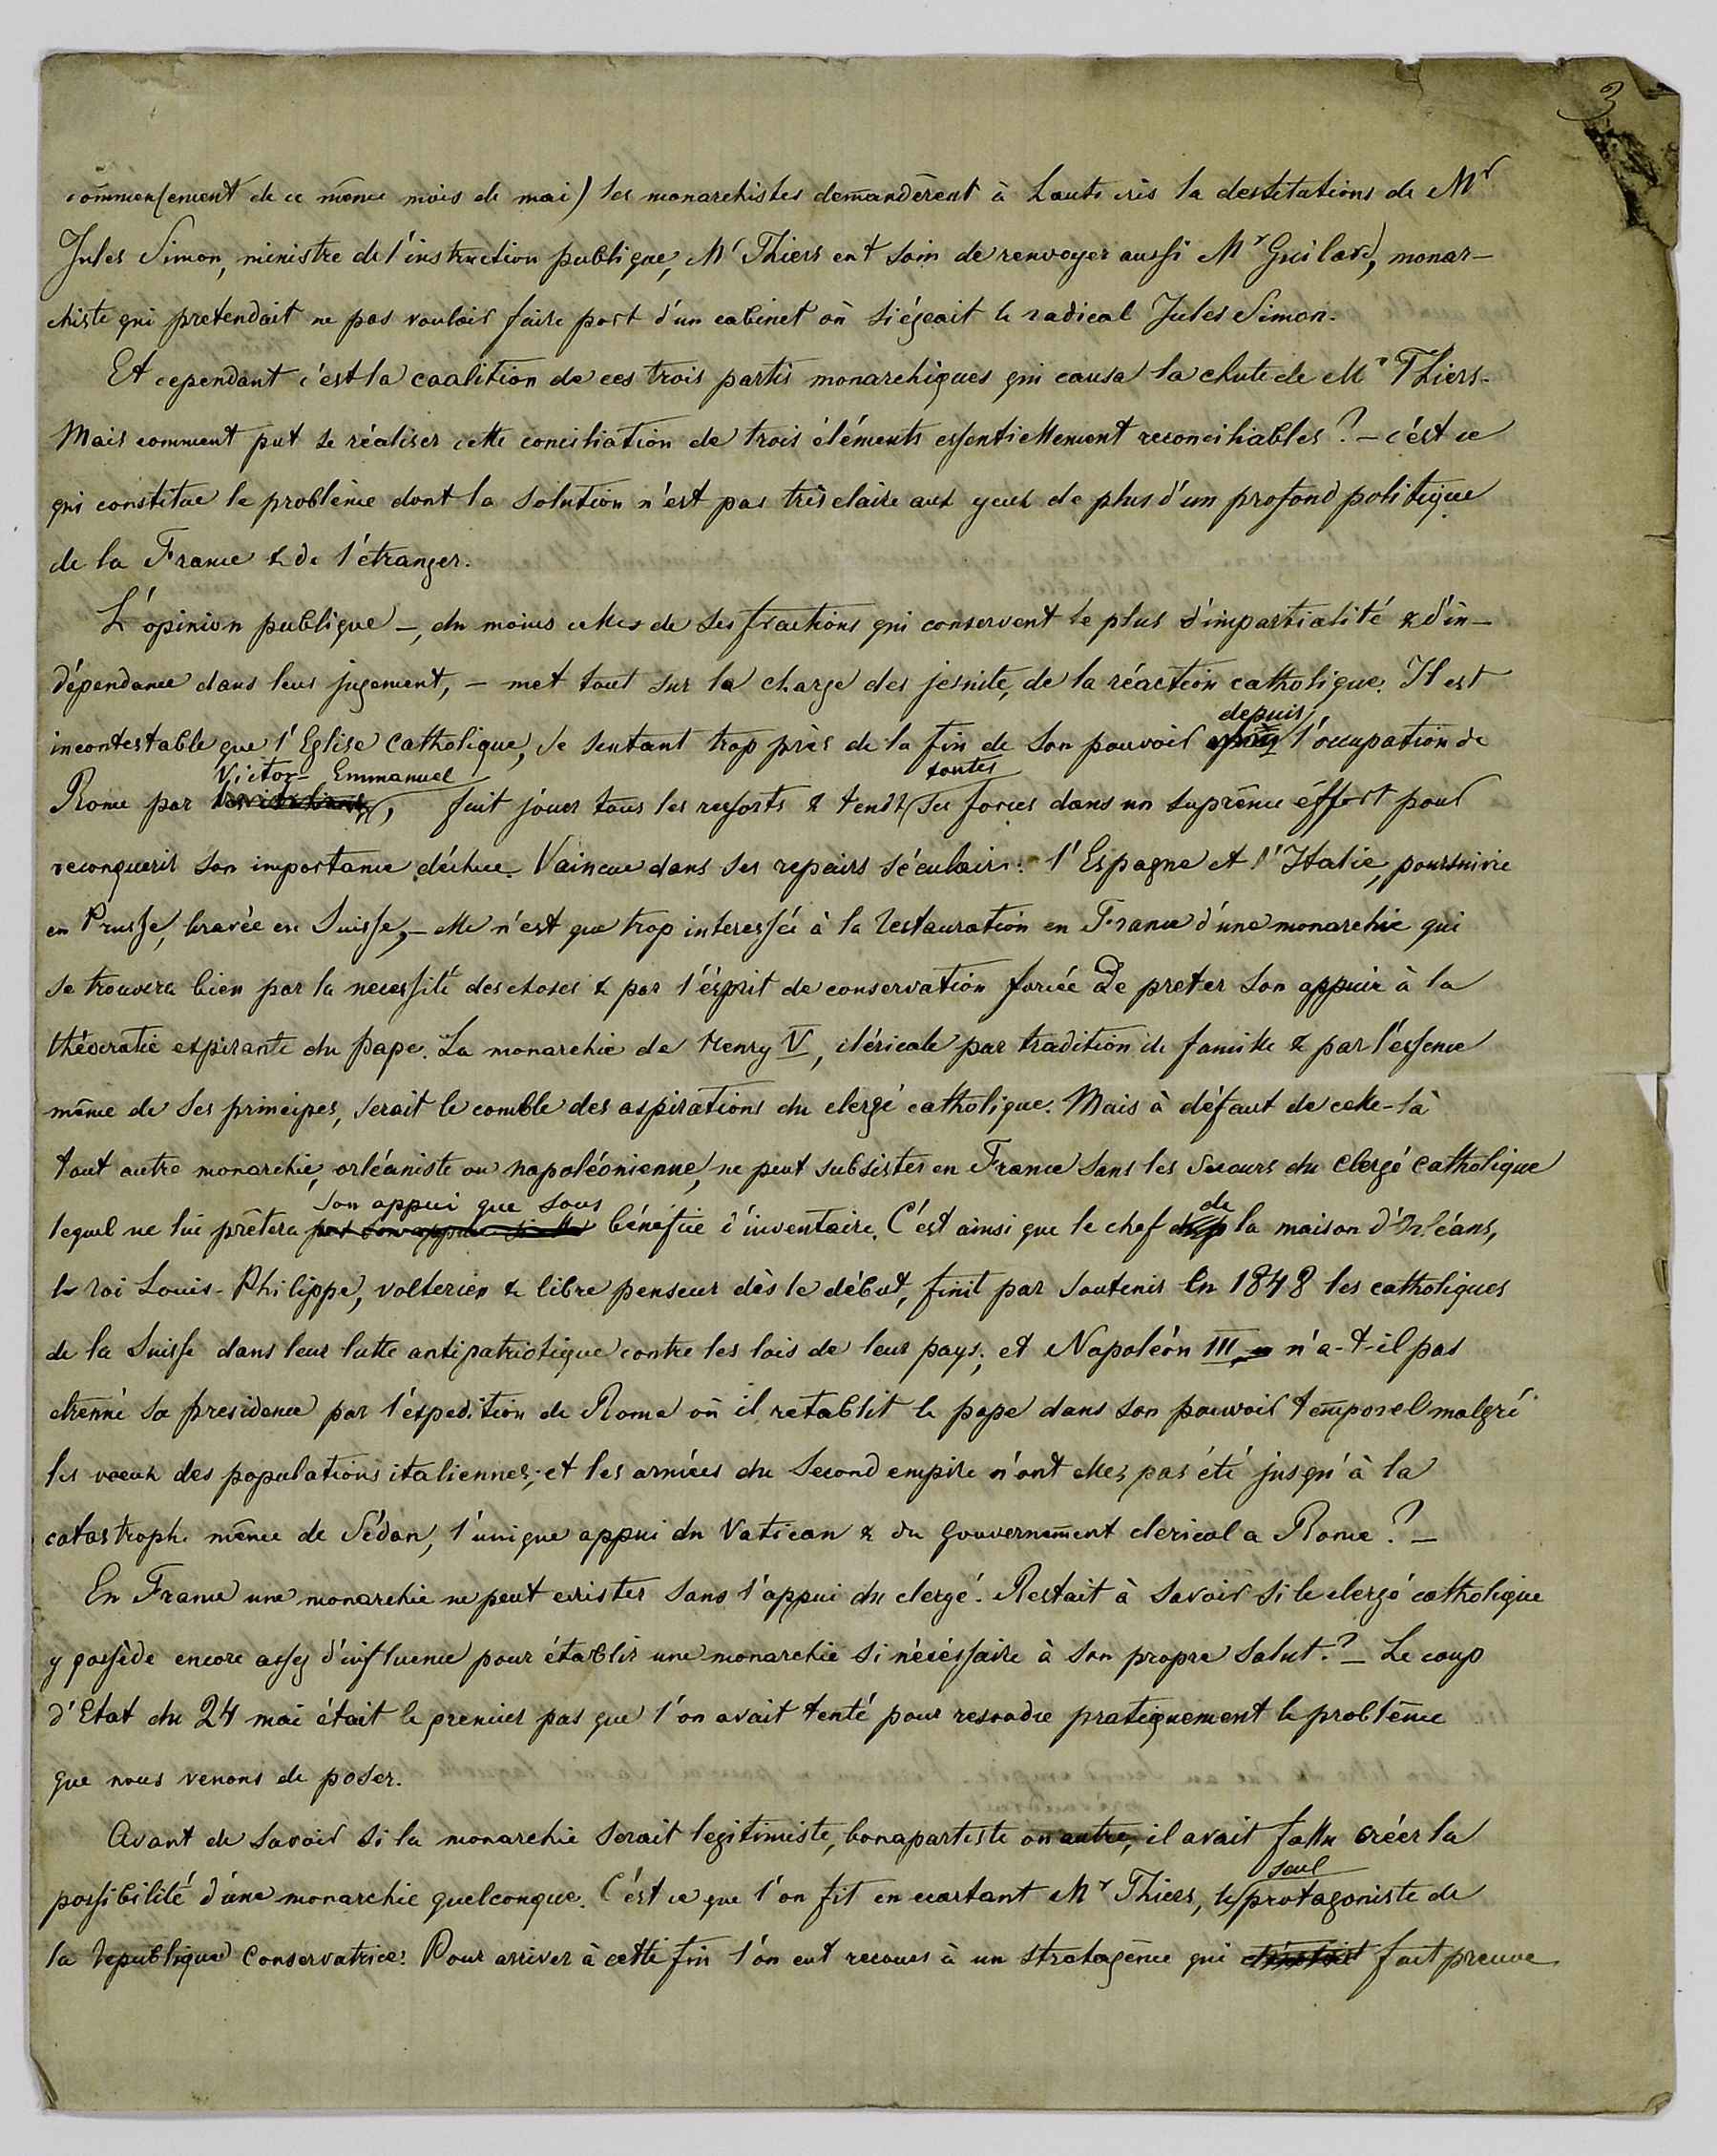 3
commencement de ce même mois de mai) les monarchistes demandèrent à hauts cris la destitutions de Mr
Jules Simon, ministre de l'instruction publique, Mr Thiers eut soin de renvoyer aussi Mr Guilard, monar-
chiste qui pretendait ne pas vouloir faire part d'un cabinet où siégeait le radical Jules Simon.
Et cependant c'est la coalition de ces trois partis monarchiques qui causa la chute de Mr Thiers.
Mais comment put se réaliser cette conciliation de trois éléments essentiellement reconciliables? – c'est ce
qui constitue le problème dont la solution n'est pas très claire aux yeux de plus d'un profond politique
de la France & de l'étranger.
L'opinion publique –, du moins celles de ses fractions qui conservent le plus d'impartialité & d'in-
dépendance dans leur jugement, – met tout sur la charge des jesuite, de la réaction catholique. Il est
incontestable que l'Eglise Catholique, se sentant trop près de la fin de son pouvoir depuis l'occupation de
Rome par Victor-Emmanuel, fait jouer tous les ressorts & tend toutes ses forces dans un suprême éffort pour
reconquerir son importance déchue. Vaincue dans ses repairs séculairs: l'Espagne et l'Italie, poursuivie
en Prusse, bravée en Suisse, – elle n'est que trop interessée à la restauration en France d'une monarchie qui
se trouvera bien par la necessité des choses & par l'ésprit de conservation forcée de preter son appuie à la
théocratie expirante du pape. La monarchie de Henry V, cléricale par tradition de famille & par l'éssence
même de ses principes, serait le comble des aspirations du clergé catholique. Mais à défaut de celle-là
tout autre monarchie, orléaniste ou napoléonienne, ne peut subsister en France sans les secours du clergé catholique
lequel ne lui prêtera son appui que sous bénéfice d'inventaire. C'est ainsi que le chef de la maison d'Orléans,
le roi Louis-Philippe, volterien & libre penseur dès le début, finit par soutenir en 1848 les catholiques
de la Suisse dans leur lutte antipatriotique contre les lois de leur pays; et Napoléon III, n'a-t-il pas
étrenné sa presidence par l'éxpedition de Rome où il retablit le pape dans son pouvoir temporel malgré
les voeux des populations italiennes; et les armées du Second empire n'ont elles pas été jusqu'à la
catastrophe même de Sédan, l'unique appui du Vatican & du gouvernement clerical a Rome? –
En France une monarchie ne peut exister sans l'appui du clergé. Restait à savoir si le clergé catholique
y possède encore assez d'influence pour établir une monarchie si nécéssaire à son propre salut.? – Le coup
d'Etat du 24 mai était le premier pas que l'on avait tenté pour resoudre pratiquement le problème
que nous venons de poser.
Avant de savoir si la monarchie serait legitimiste, bonapartiste ou autre, il avait fallu créer la
possibilité d'une monarchie quelconque. C'est ce que l'on fit en ecartant Mr Thiers, le seul protagoniste de
la republique conservatrice. Pour arriver à cette fin l'on eut recours à un stratagème qui fait preuve